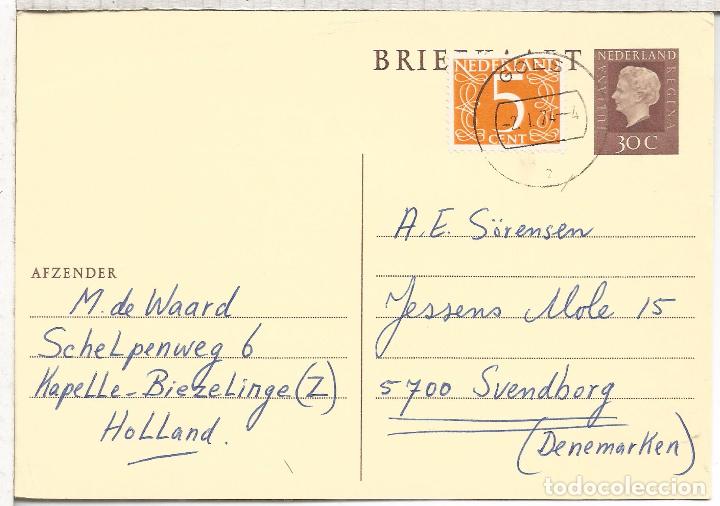 BRIEFKAART
NEDERLAND
5
CENT
GOES
-2.1.74-4
NEDERLAND
JULIANA
REGINA
30 C
A.E. Sörensen
Jessens Mole 15
5700 Svendborg
(Denemarken)
AFZENDER
M. de Waard
Schelpenweg 6
Kapelle-Biezelinge (Z)
Holland.
todocoleccion.net